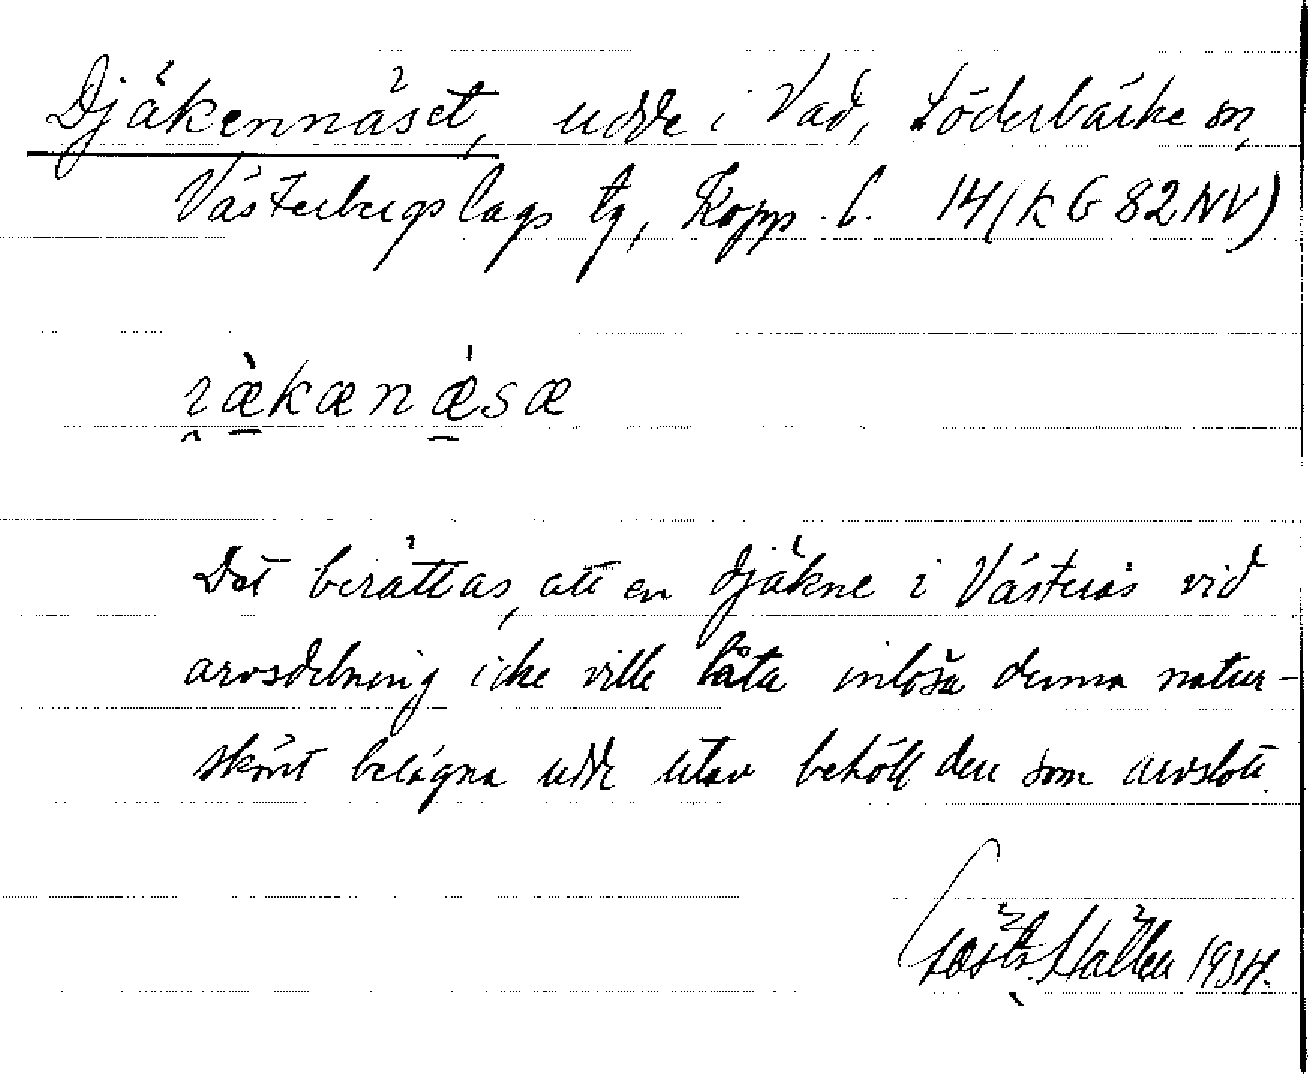 Djäkennäset, udde i Vad, Söderbärke sn,
Västerbergslags tg, Kopp. l. 14 (K G 82 NV)
ı̯æ̀kænǽsæ
Det berättas, att en djäkne i Västerås vid
arvsdelning icke ville låta inlösa denna natur-
skönt belägna udde utav behöll den som arvslott.
1934.